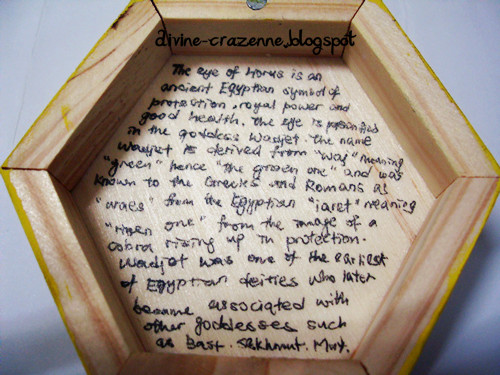 divine-crazenne.blogspot
The eye of Horus is an
ancient Egyptian symbol of
protection, royal power and
good health. The eye is personified
in the goddess Wadjet. The name
Wadjet is derived from "waj" meaning
"green" hence "the green one" and was
known to the Greeks and Romans as
"uraes" from the Egyptian "iaret" meaning
"risen one" from the image of a
cobra rising up in protection.
Wadjet was one of the earliest
of Egyptian deities who later
became associated with
other goddesses such
as Bast. Sekhmut. Mut.